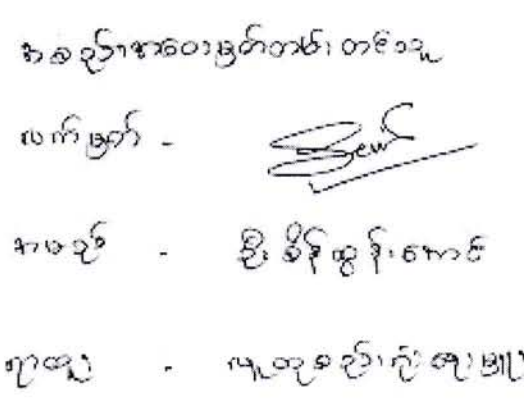 အစည်းအဝေးမှတ်တမ်းတင်သူ
လက်မှတ် -
အမည် - ဦးစိန်ထွန်းအောင်
ရာထူး - လူထုစည်းရုံးရေးမှူး